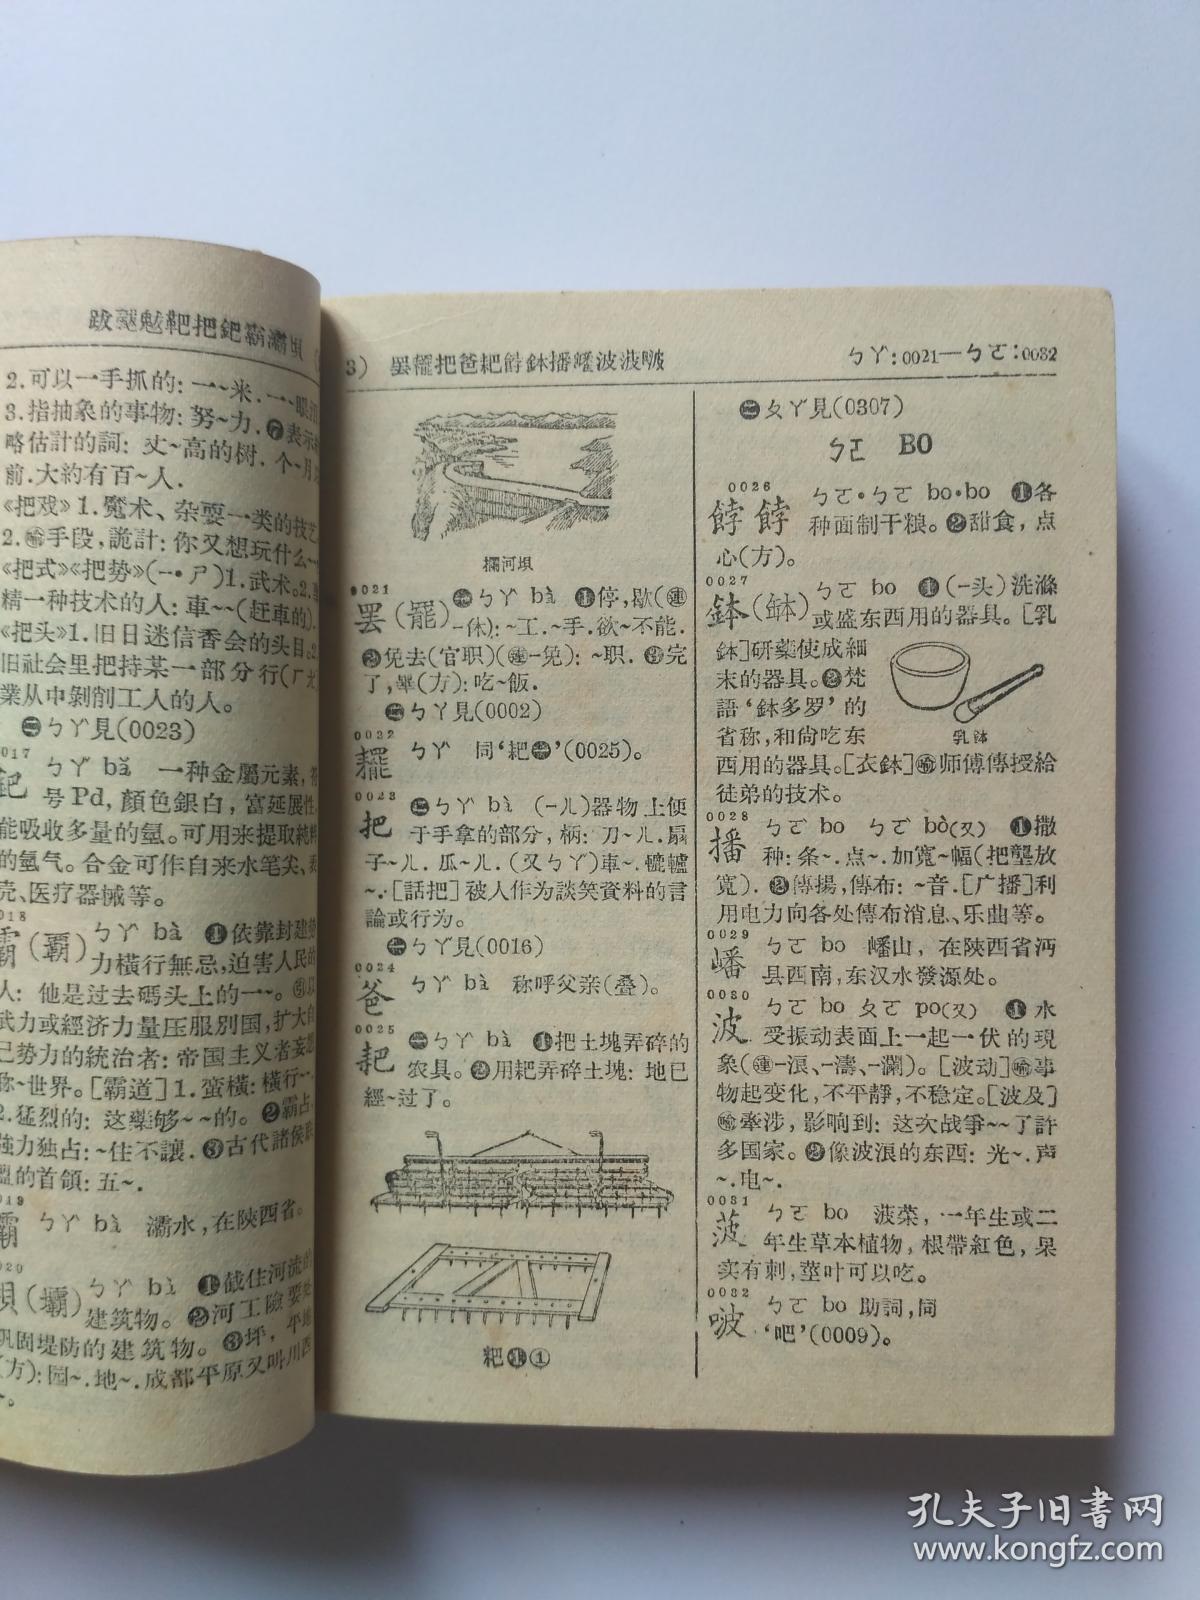 跋䟦魃靶把鈀霸灞垻
2.可以一手抓的: 一~米.一~眼泪
3.指抽象的事物: 努~力. ㊆表示
略估計的詞: 丈~高的树. 个~月
前.大約有百~人.
《把戏》1.魔术、杂耍一类的技艺
2.㊉手段,詭計: 你又想玩什么~
《把式》《把势》(-•ㄕ)1.武术。2.
精一种技术的人: 車~~(赶車的).
《把头》1.旧日迷信香会的头目.2.
旧社会里把持某一部分行(ㄏㄤ
業从中剝削工人的人。
㊁ㄅㄚˋ見(0023)
017
鈀 ㄅㄚˇ bǎ 一种金屬元素, 符
号Pd, 顏色銀白, 富延展性,
能吸收多量的氫。可用来提取純粹
的氫气。合金可作自来水笔尖、表
壳、医疗器械等。
018
霸(覇) ㄅㄚˋ bà ❶依靠封建势
力橫行無忌,迫害人民的
人: 他是过去碼头上的一~。㊕以
武力或經济力量压服別国,扩大自
己势力的統治者: 帝国主义者妄想
称~世界。[霸道]1.蛮橫: 橫行~~.
2.猛烈的: 这藥够~~的。❷霸占,
強力独占: ~住不讓. ❸古代諸侯联
盟的首領: 五~.
019
灞 ㄅㄚˋ bà 灞水,在陝西省。
020
垻(壩) ㄅㄚˋ bà ❶截住河流的
建筑物。❷河工險要处
巩固堤防的建筑物。❸坪, 平地
(方): 园~.地~.成都平原又叫川西
~。
3) 罢䎱把爸耙餑鉢播嶓波菠啵
ㄅㄚˋ:0021—ㄅㄛ:0032
欄河垻
0021
罢(罷) ㊀ㄅㄚˋ bà ❶停,歇(㊥
-休): ~工.~手.欲~不能.
❷免去(官职)(㊥-免): ~职. ❸完
了,畢(方): 吃~飯.
㊁ㄅㄚ見(0002)
0022
䎱 ㄅㄚˋ 同‘耙㊀’(0025)。
0023
把 ㊁ㄅㄚˋ bà (-ㄦ)器物上便
于手拿的部分, 柄: 刀~ㄦ.扇
子~ㄦ. 瓜~ㄦ. (又ㄅㄚˇ)車~.轆轤
~.[話把]被人作为談笑資料的言
論或行为。
㊀ㄅㄚˇ見(0016)
0024
爸 ㄅㄚˋ bà 称呼父亲(叠)。
0025
耙 ㊀ㄅㄚˋ bà ❶把土塊弄碎的
农具。❷用耙弄碎土塊: 地已
經~过了。
耙❶①
㊁ㄆㄚˊ見(0307)
ㄅㄛ BO
0026
餑餑 ㄅㄛ•ㄅㄛ bo•bo ❶各
种面制干粮。❷甜食, 点
心(方)。
0027
鉢(缽) ㄅㄛ bo ❶(-头)洗滌
或盛东西用的器具。[乳
鉢]研藥使成細
末的器具。❷梵
語‘鉢多罗’的
省称,和尙吃东
乳鉢
西用的器具。[衣鉢]㊉师傅傳授給
徒弟的技术。
0028
播 ㄅㄛ bo ㄅㄛˋ bò(又) ❶撒
种: 条~.点~.加寬~幅(把壟放
寬). ❷傳揚,傳布: ~音.[广播]利
用电力向各处傳布消息、乐曲等。
0029
嶓 ㄅㄛ bo 嶓山, 在陝西省沔
县西南,东汉水發源处。
0030
波 ㄅㄛ bo ㄆㄛ po(又) ❶水
受振动表面上一起一伏的現
象(㊥-浪、-濤、-瀾)。[波动]㊉事
物起变化, 不平靜,不稳定。[波及]
㊉牽涉, 影响到: 这次战爭~~了許
多国家。❷像波浪的东西: 光~.声
~.电~.
0031
菠 ㄅㄛ bo 菠菜, 一年生或二
年生草本植物, 根帶紅色, 果
实有刺,莖叶可以吃。
0032
啵 ㄅㄛ bo 助詞,同
‘吧’(0009)。
孔夫子旧书网
www.kongfz.com